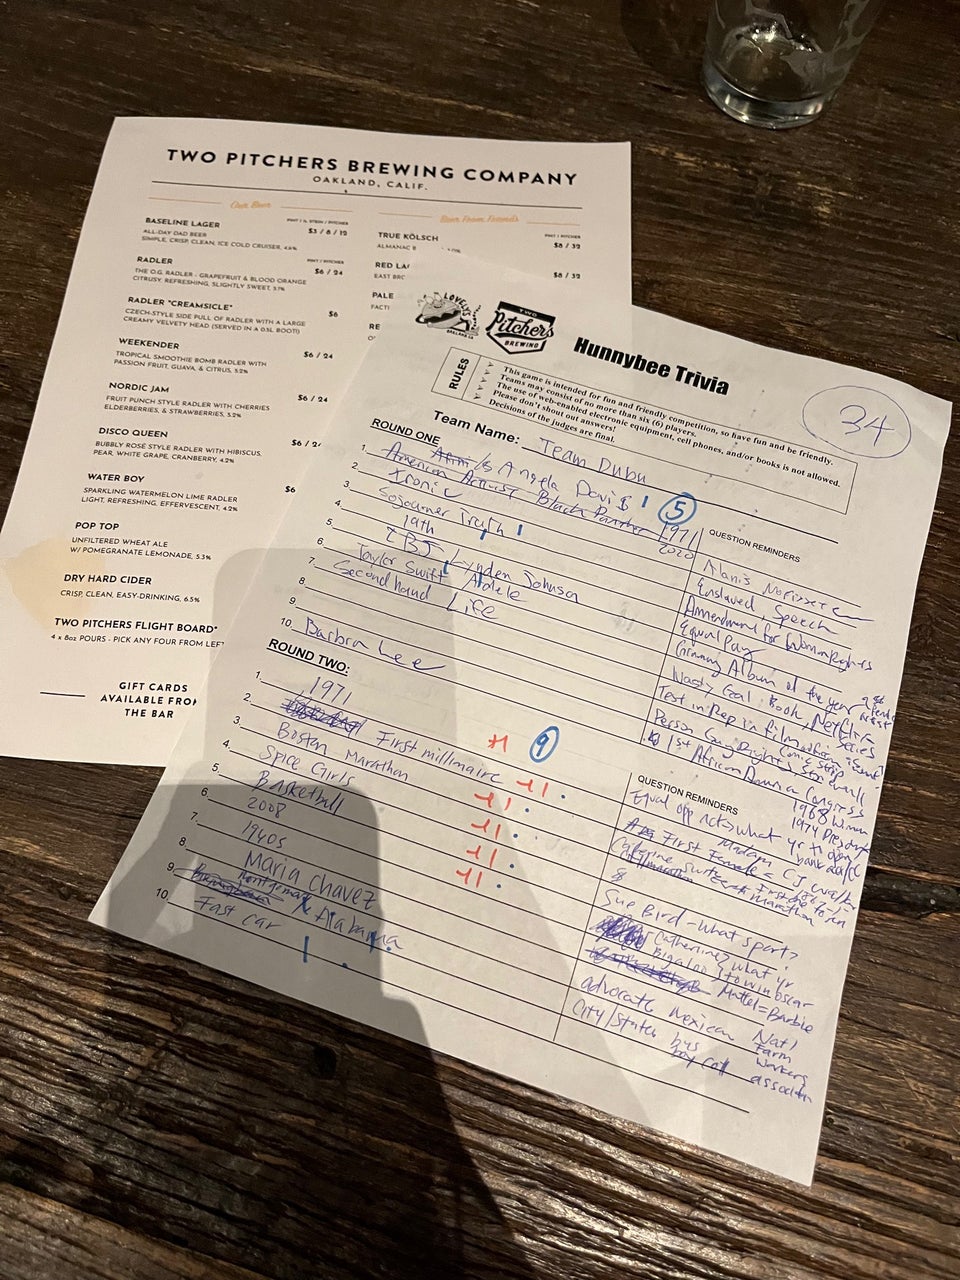 TWO PITCHERS BREWING COMPANY
OAKLAND, CALIF.
Our Beer
BASELINE LAGER
PINT / ½ STEIN / PITCHER
$3 / 8 / 12
ALL-DAY DAD BEER
SIMPLE, CRISP, CLEAN, ICE COLD CRUISER, 4.8%
RADLER
PINT / PITCHER
$6 / 24
THE O.G. RADLER - GRAPEFRUIT & BLOOD ORANGE
CITRUSY, REFRESHING, SLIGHTLY SWEET, 5.1%
RADLER "CREAMSICLE"
$6
CZECH-STYLE SIDE PULL OF RADLER WITH A LARGE
CREAMY VELVETY HEAD (SERVED IN A 0.3L BOOT!)
WEEKENDER
$6 / 24
TROPICAL SMOOTHIE BOMB RADLER WITH
PASSION FRUIT, GUAVA, & CITRUS, 5.2%
NORDIC JAM
$6 / 24
FRUIT PUNCH STYLE RADLER WITH CHERRIES
ELDERBERRIES, & STRAWBERRIES, 5.2%
DISCO QUEEN
$6 / 24
BUBBLY ROSÉ STYLE RADLER WITH HIBISCUS,
PEAR, WHITE GRAPE, CRANBERRY, 4.2%
WATER BOY
$6
SPARKLING WATERMELON LIME RADLER
LIGHT, REFRESHING, EFFERVESCENT, 4.2%
POP TOP
UNFILTERED WHEAT ALE
W/ POMEGRANATE LEMONADE, 5.3%
DRY HARD CIDER
CRISP, CLEAN, EASY-DRINKING, 6.5%
TWO PITCHERS FLIGHT BOARD*
4 x 8oz POURS - PICK ANY FOUR FROM LEFT
GIFT CARDS
AVAILABLE FROM
THE BAR
Beer From Friends
TRUE KÖLSCH
PINT / PITCHER
$8 / 32
ALMANAC B
RED LA
$8 / 32
EAST BRO
PALE
FACTI
RE
LOVELY'S
OAKLAND CA
TWO
Pitchers
BREWING
Hunnybee Trivia
34
RULES
This game is intended for fun and friendly competition, so have fun and be friendly.
Teams may consist of no more than six (6) players.
The use of web-enabled electronic equipment, cell phones, and/or books is not allowed.
Please don't shout out answers!
Decisions of the judges are final.
Team Name: Team Dubu
ROUND ONE
QUESTION REMINDERS
1. Angela Davis 1 5
American Activist Black Panther 1971
2. Ironic 2020
3. Sojourner Truth 1
4. 19th
5. LBJ Lynden Johnson
6. Taylor Swift / Adele
7. Secondhand Life
8.
9.
10. Barbra Lee
Alanis Morissette
Enslaved, Speech
Amendment for Women Rights
Equal Pay
Grammy Album of the year
Nasty Gal: Book, Netflix Series
Test in Rep in film
Person Gay Rights
1st African American Congress
1968 Woman
ROUND TWO:
QUESTION REMINDERS
1. 1971 9
2. First millinaire
3. Boston Marathon
4. Spice Girls
5. Basketball
6. 2008
7. 1940s
8. Maria Chavez
9. Birmingham Montgomery Alabama
10. Fast car
Equal opp act> what yr to open bank acc
First Female = Madam CJ Walk
First to run marathon
Sue Bird - What sport?
Catherine Bigaloo > what yr to win oscar
Mattel = Barbie
advocate Mexican Nat'l Farm Workers
City/States bus boycott